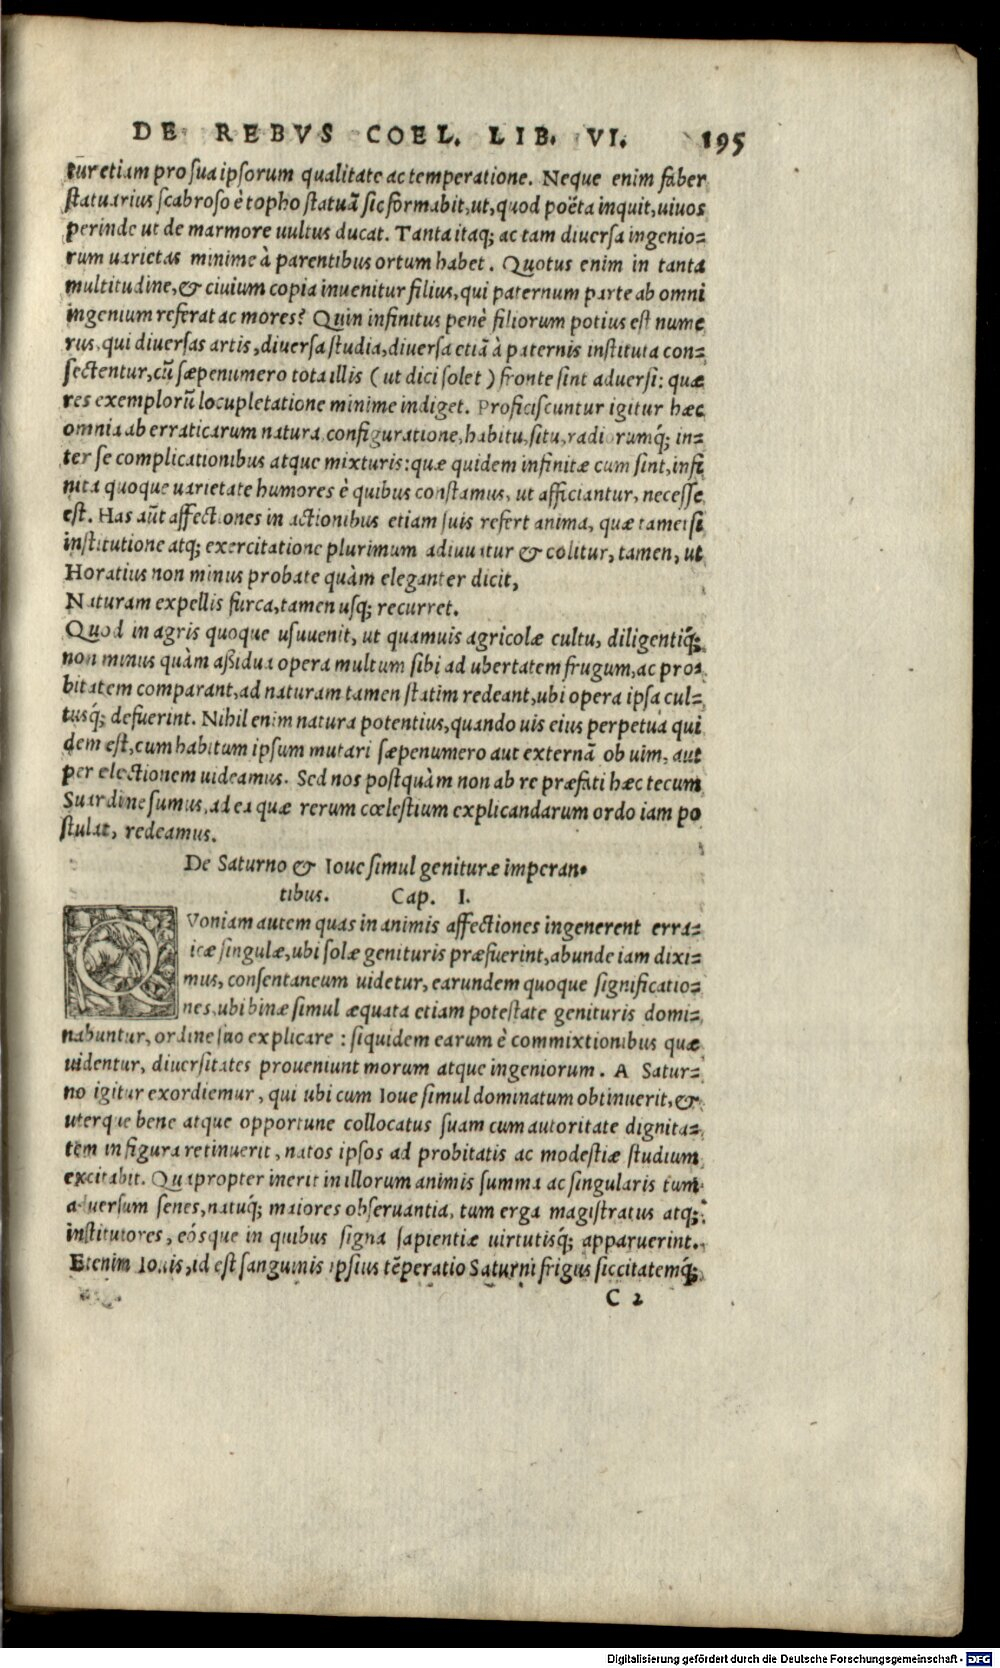 DE REBVS COEL. LIB. VI. 195
tur etiam pro sua ipsorum qualitate ac temperatione. Neque enim faber
statuarius scabroso è topho statuã sic formabit, ut, quod poëta inquit, uiuos
perinde ut de marmore uultus ducat. Tanta itaq; ac tam diuersa ingenio=
rum uarietas minime à parentibus ortum habet. Quotus enim in tanta
multitudine, & ciuium copia inuenitur filius, qui paternum parte ab omni
ingenium referat ac mores? Quin infinitus penè filiorum potius est nume
rus, qui diuersas artis, diuersa studia, diuersa etiã à paternis instituta con=
sectentur, cũ sæpenumero tota illis (ut dici solet) fronte sint aduersi: quæ
res exemplorũ locupletatione minime indiget. Proficiscuntur igitur hæc
omnia ab erraticarum natura, configuratione, habitu, situ, radiorumq́; in=
ter se complicationibus atque mixturis: quæ quidem infinitæ cum sint, infi
nita quoque uarietate humores è quibus constamus, ut afficiantur, necesse
est. Has aũt affectiones in actionibus etiam suis refert anima, quæ tametsi
institutione atq; exercitatione plurimum adiuuatur & colitur, tamen, ut
Horatius non minus probate quàm eleganter dicit,
Naturam expellis furca, tamen usq; recurret.
Quod in agris quoque usuuenit, ut quamuis agricolæ cultu, diligentiq́;
non minus quàm aßidua opera multum sibi ad ubertatem frugum, ac pro=
bitatem comparant, ad naturam tamen statim redeant, ubi opera ipsa cul=
tusq́; defuerint. Nihil enim natura potentius, quando uis eius perpetua qui
dem est, cum habitum ipsum mutari sæpenumero aut externã ob uim, aut
per electionem uideamus. Sed nos postquàm non ab re præfati hæc tecum
Suardine sumus, ad ea quæ rerum cœlestium explicandarum ordo iam po
stulat, redeamus.
De Saturno & Ioue simul genituræ imperan=
tibus. Cap. I.
QVoniam autem quas in animis affectiones ingenerent erra=
icæ singulæ, ubi solæ genituris præfuerint, abunde iam dixi=
mus, consentaneum uidetur, earundem quoque significatio=
nes, ubi binæ simul æquata etiam potestate genituris domi=
nabuntur, ordine suo explicare: siquidem earum è commixtionibus quæ
uidentur, diuersitates proueniunt morum atque ingeniorum. A Satur=
no igitur exordiemur, qui ubi cum Ioue simul dominatum obtinuerit, &
uterque bene atque opportune collocatus suam cum autoritate dignita=
tem in figura retinuerit, natos ipsos ad probitatis ac modestiæ studium
excitabit. Quapropter inerit in illorum animis summa ac singularis tum
aduersum senes, natuq́; maiores obseruantia, tum erga magistratus atq;
institutores, eósque in quibus signa sapientiæ uirtutisq́; apparuerint.
Etenim Iouis, id est sanguinis ipsius tẽperatio Saturni frigus siccitatemq́;
C 2
Digitalisierung gefördert durch die Deutsche Forschungsgemeinschaft - DFG